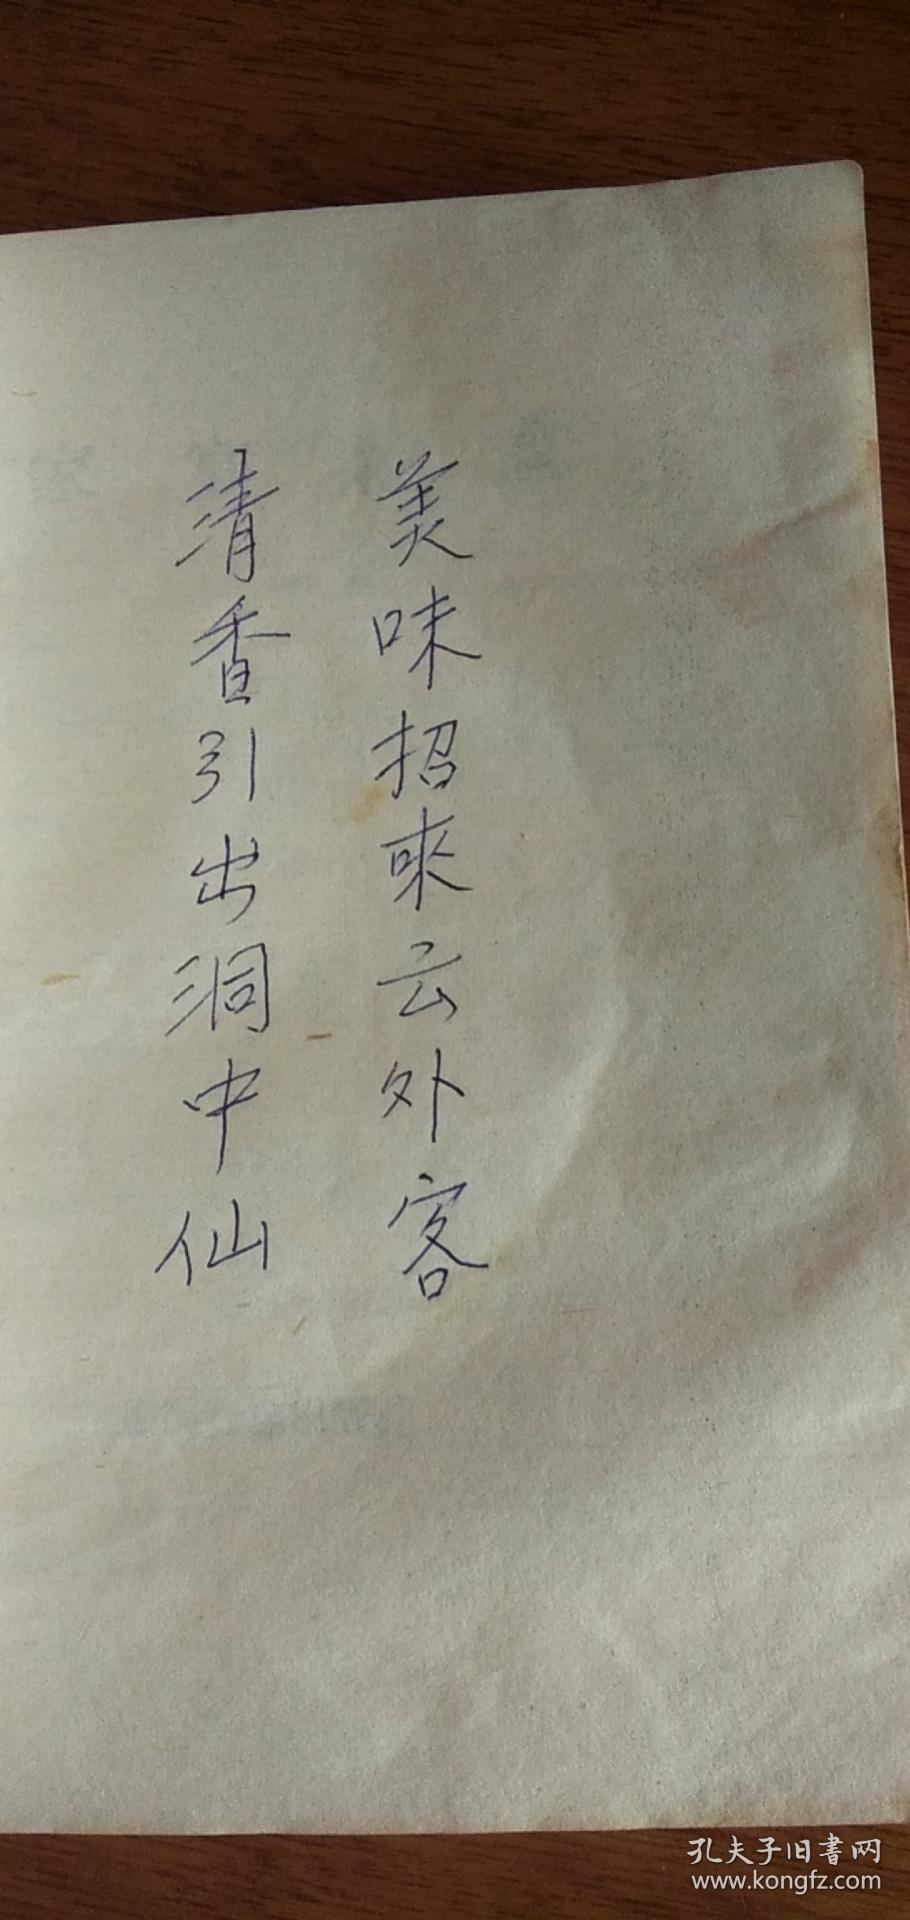 美味招來云外客
清香引出洞中仙
孔夫子旧書网
www.kongfz.com